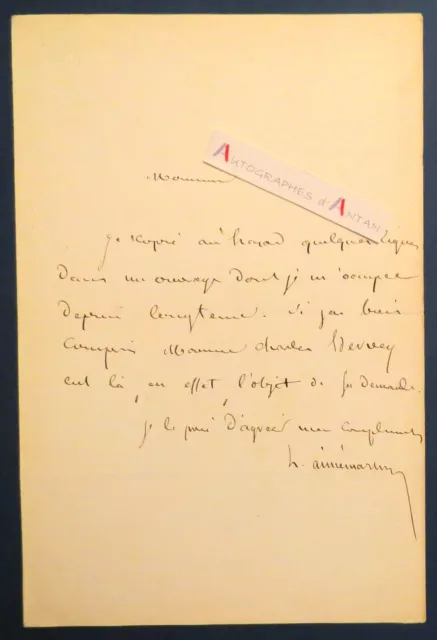 AUTOGRAPHES d'ANTAN
Monsieur
je copie au hazard quelques lignes
dans un ouvrage dont je m'occupe
depuis longtems. Si j'ai bien
compris Monsieur Charles
est là, en effet l'objet de sa demande.
je le prie d'agréer mes compliments
h.